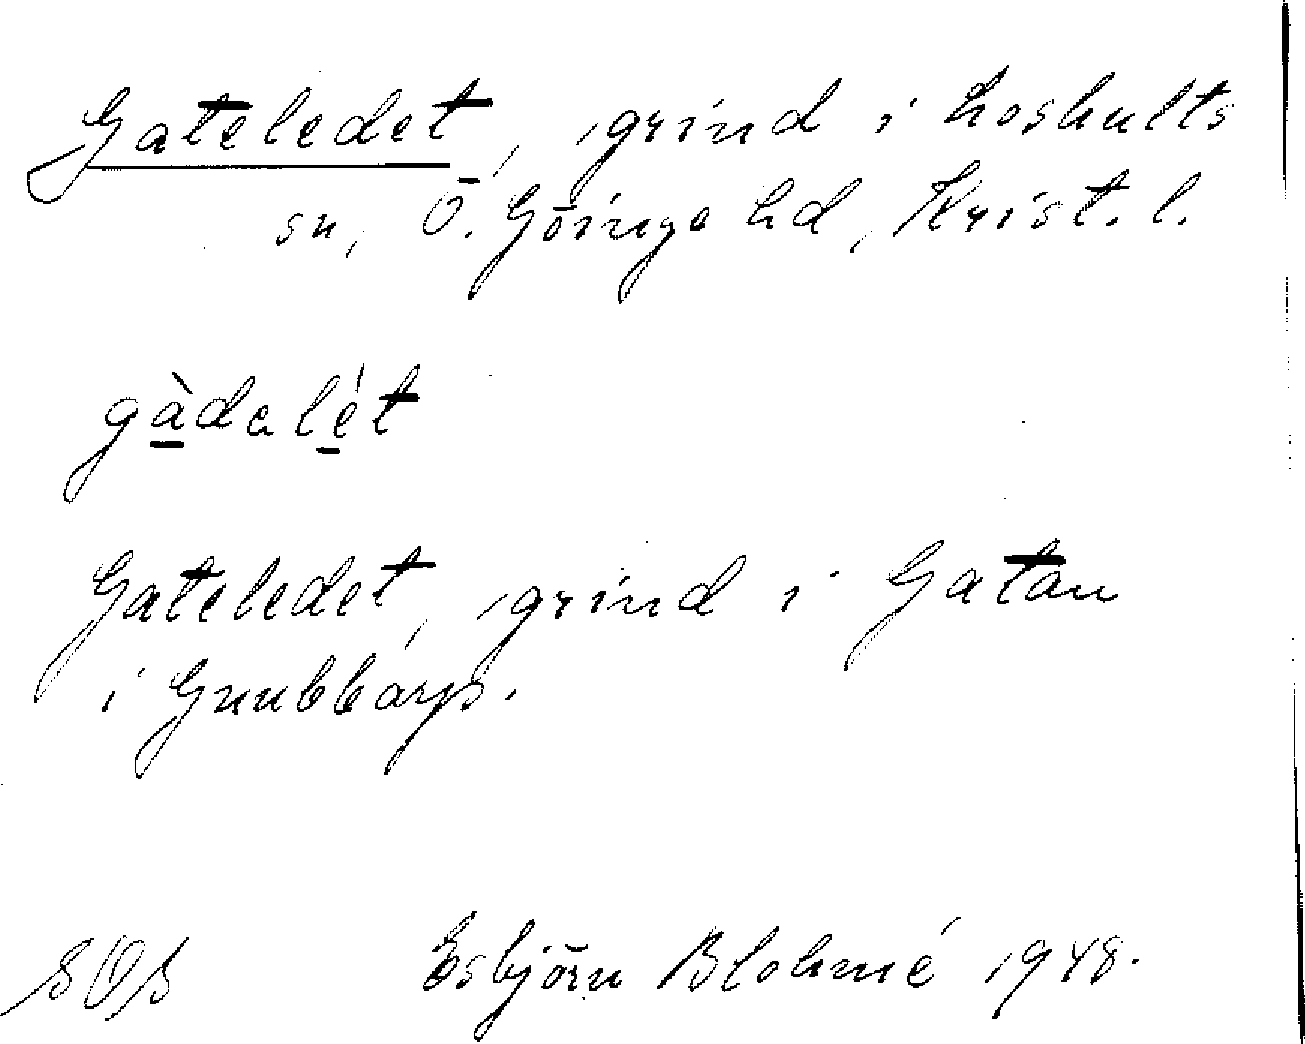 Gateledet, grind i Loshults
sn, Ö. Göinge hd, Krist. l.
gàdalét
Gateledet, grind i Gatan
i Gnubbarp.
SOS Esbjörn Blohmé 1948.